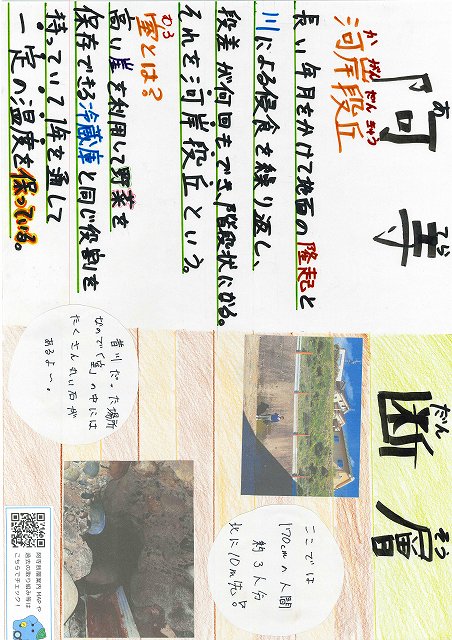 阿寺断層
あ でら だん そう
河岸段丘
か がん だん きゅう
長い年月をかけて地面の隆起と
川による侵食を繰り返し、
段差が何回もでき、階段状になる。
それを河岸段丘という。
室とは?
むろ
高い崖を利用して野菜を
保存できる冷蔵庫と同じ役割を
持っていて1年を通して
一定の温度を保っている。
ここでは
170cmの人間
約3人分
北に10m先!
昔川だった場所
なので「室」の中には
たくさん丸い石が
あるよ〜。
阿寺断層案内MAPや
過去の取り組み等は
こちらでチェック!